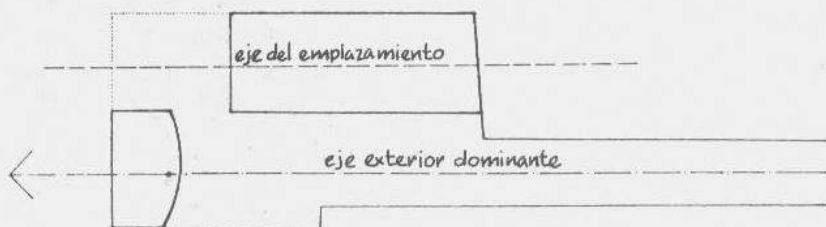 eje del emplazamiento
eje exterior dominante